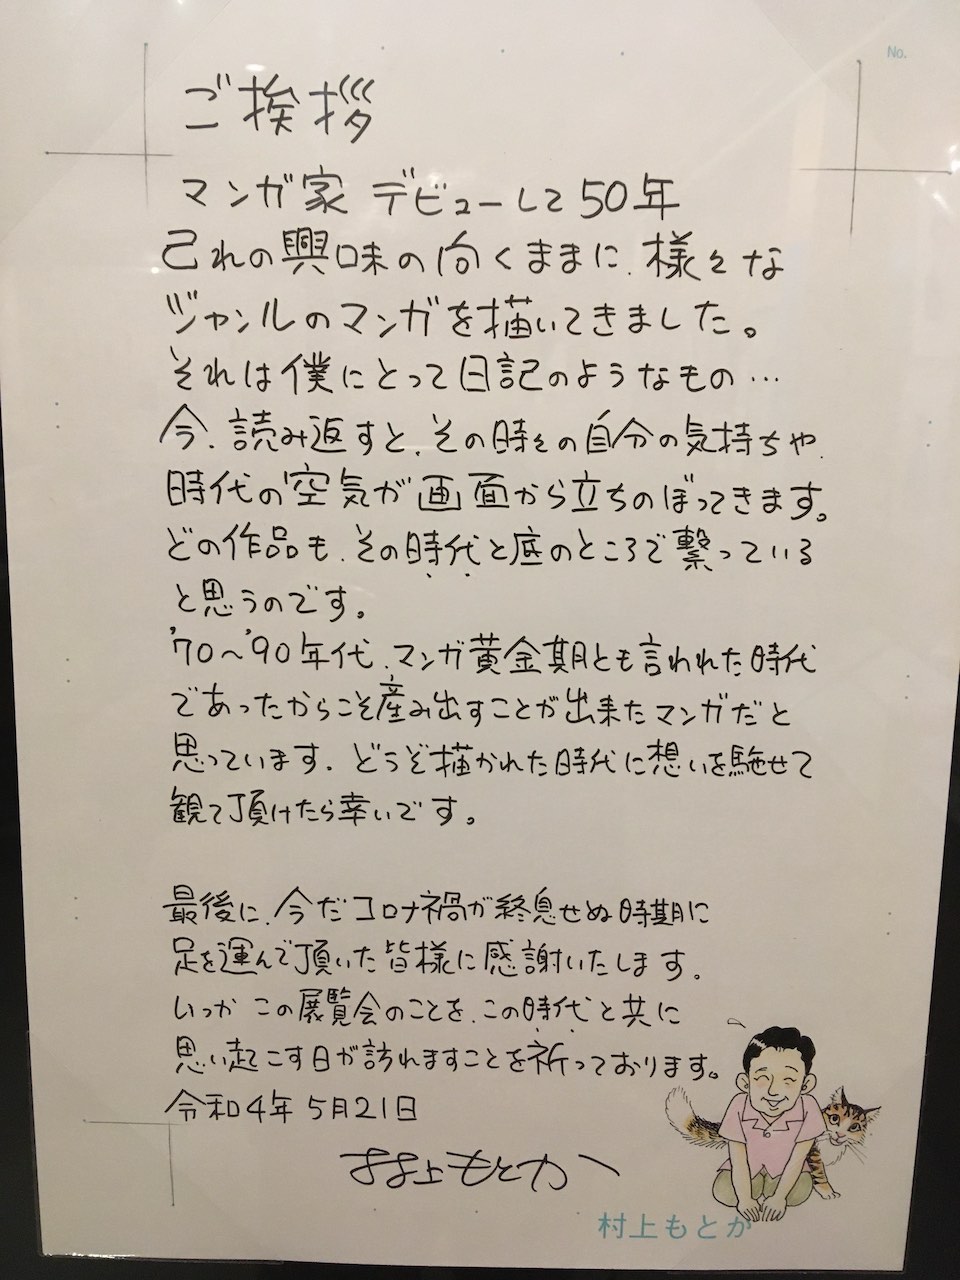 No.
ご挨拶
マンガ家 デビューして50年
己れの興味の向くままに、様々な
ジャンルのマンガを描いてきました。
それは僕にとって日記のようなもの…
今、読み返すと、その時々の自分の気持ちや、
時代の空気が画面から立ちのぼってきます。
どの作品も、その時代と底のところで繋っている
と思うのです。
'70〜'90年代、マンガ黄金期とも言われた時代
であったからこそ産み出すことが出来たマンガだと
思っています。どうぞ描かれた時代に想いを馳せて
観て頂けたら幸いです。
最後に、今だコロナ禍が終息せぬ時期に
足を運んで頂いた皆様に感謝いたします。
いつか この展覧会のことを、この時代と共に
思い起こす日が訪れますことを祈っております。
令和4年 5月21日
村上もとか
村上もとか